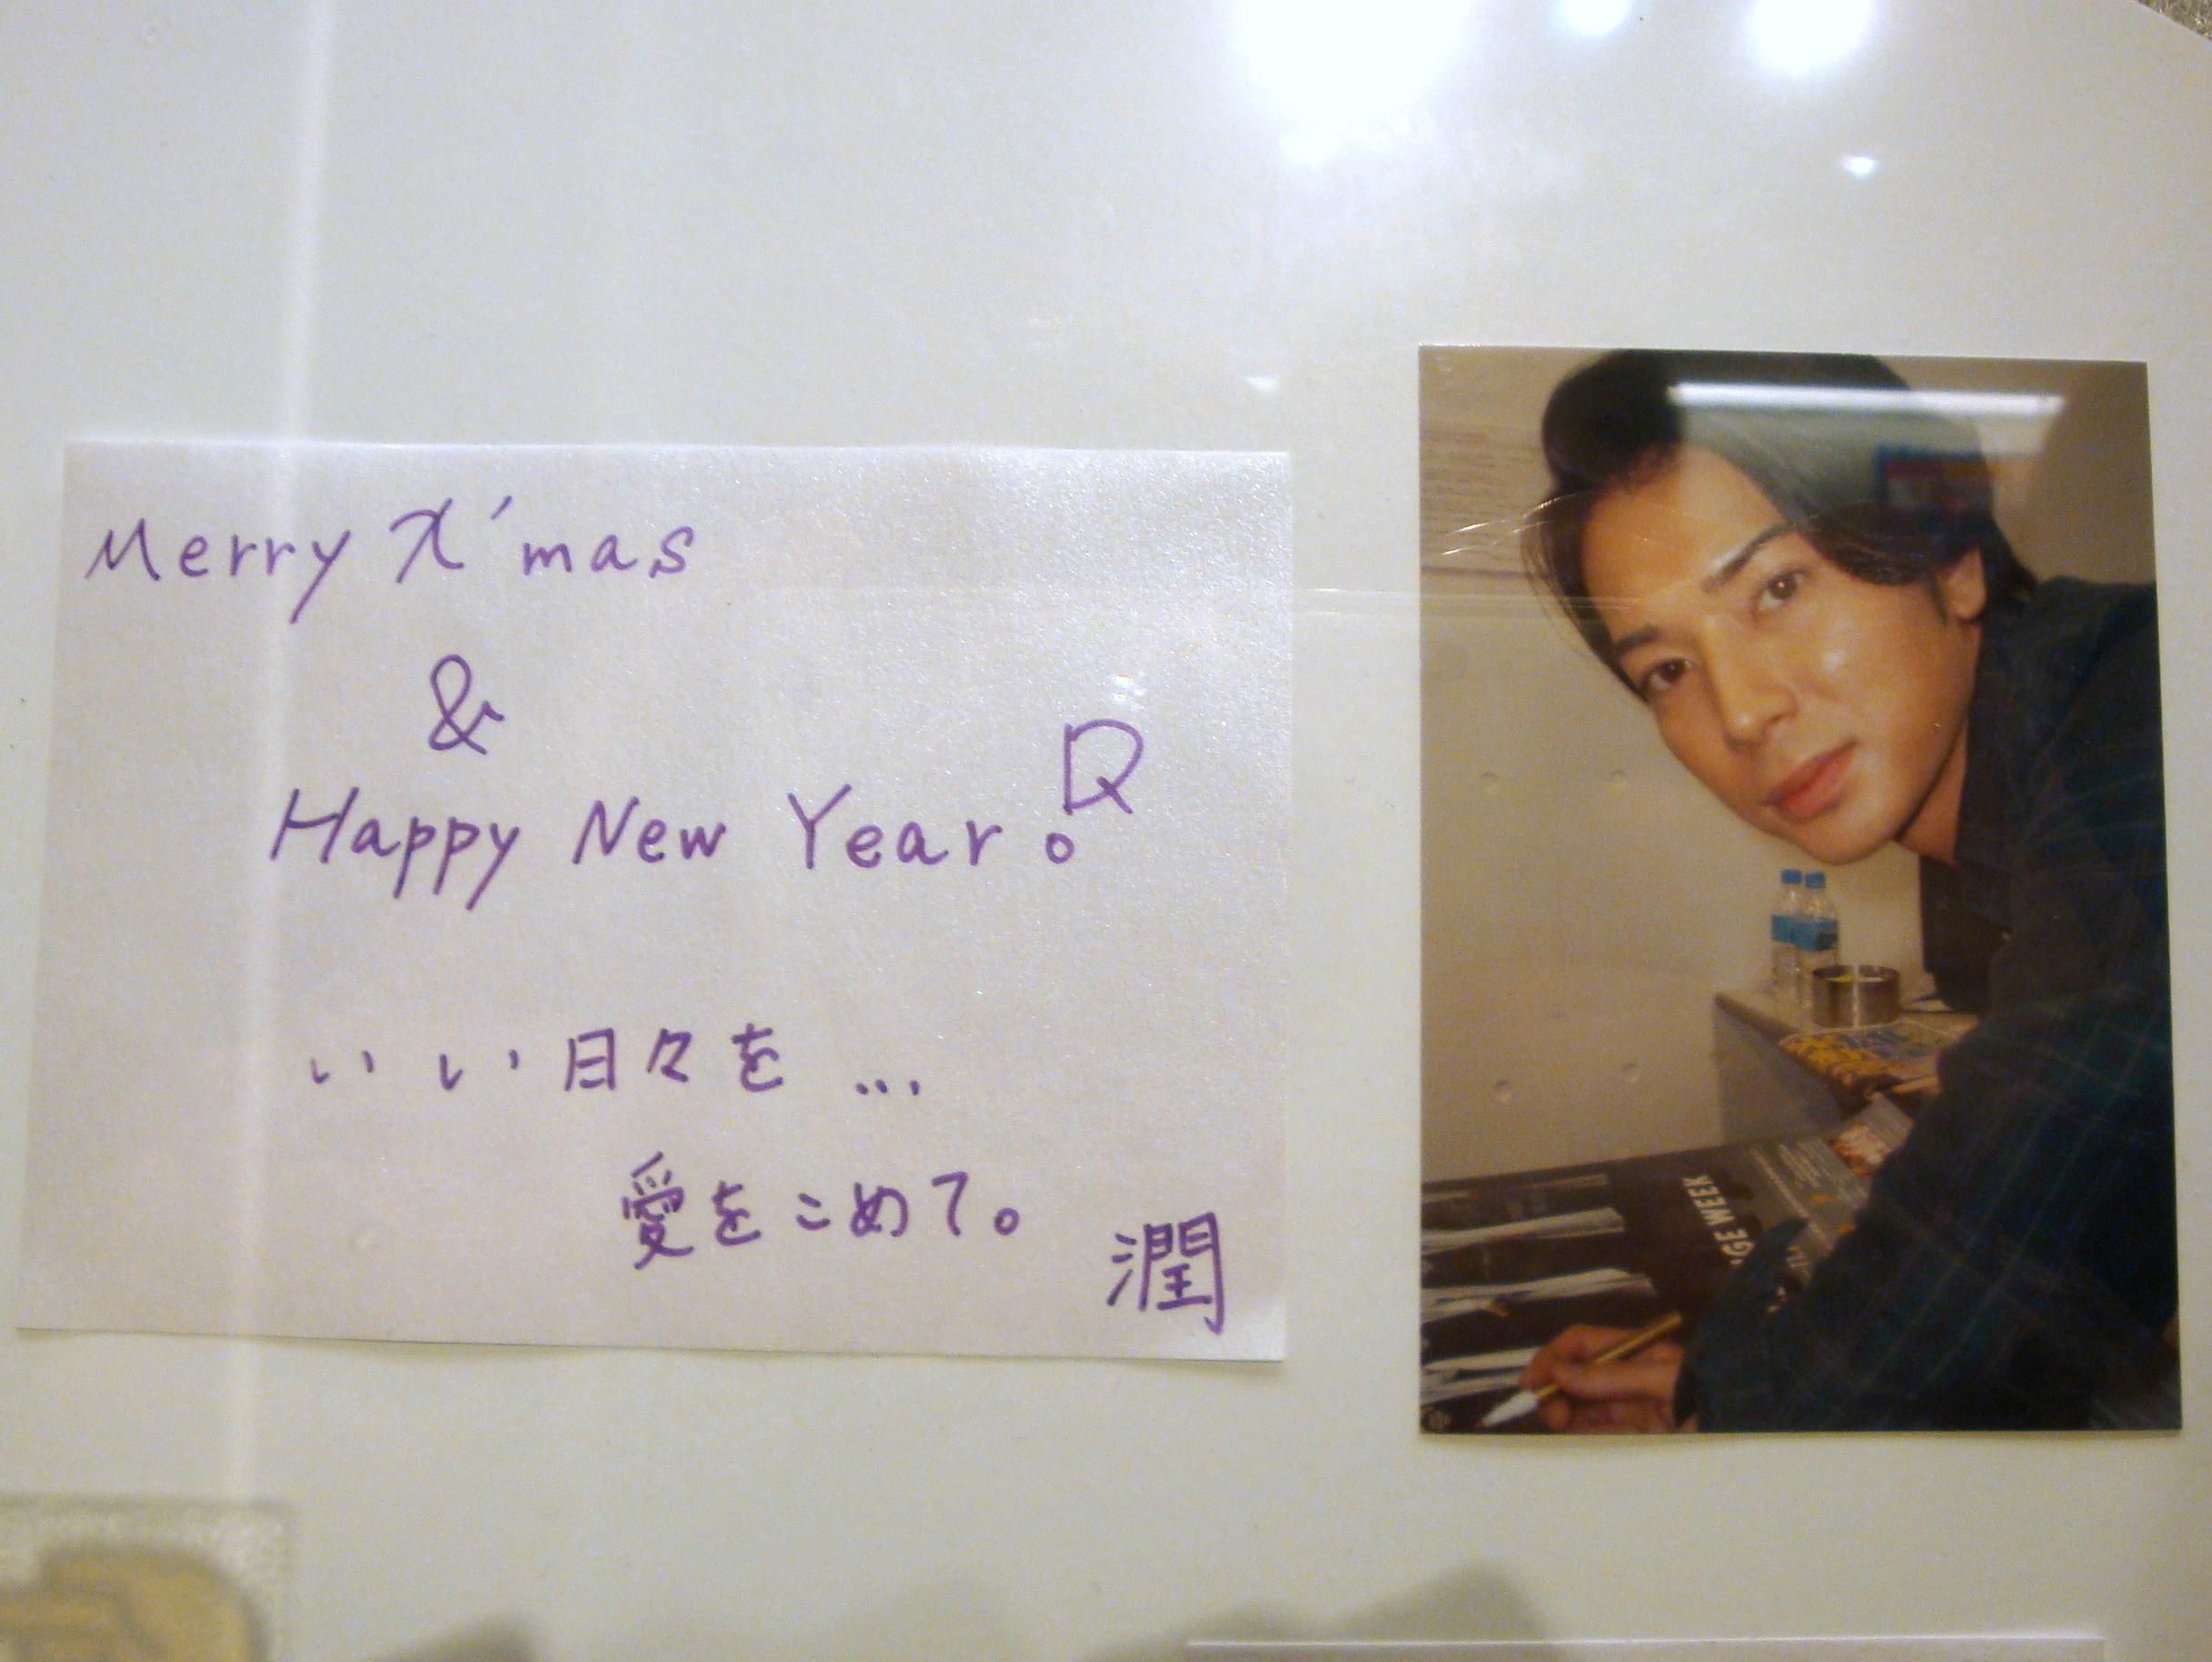 Merry X'mas
&
Happy New Year.
いい日々を...
愛をこめて。
潤
GE WEEK